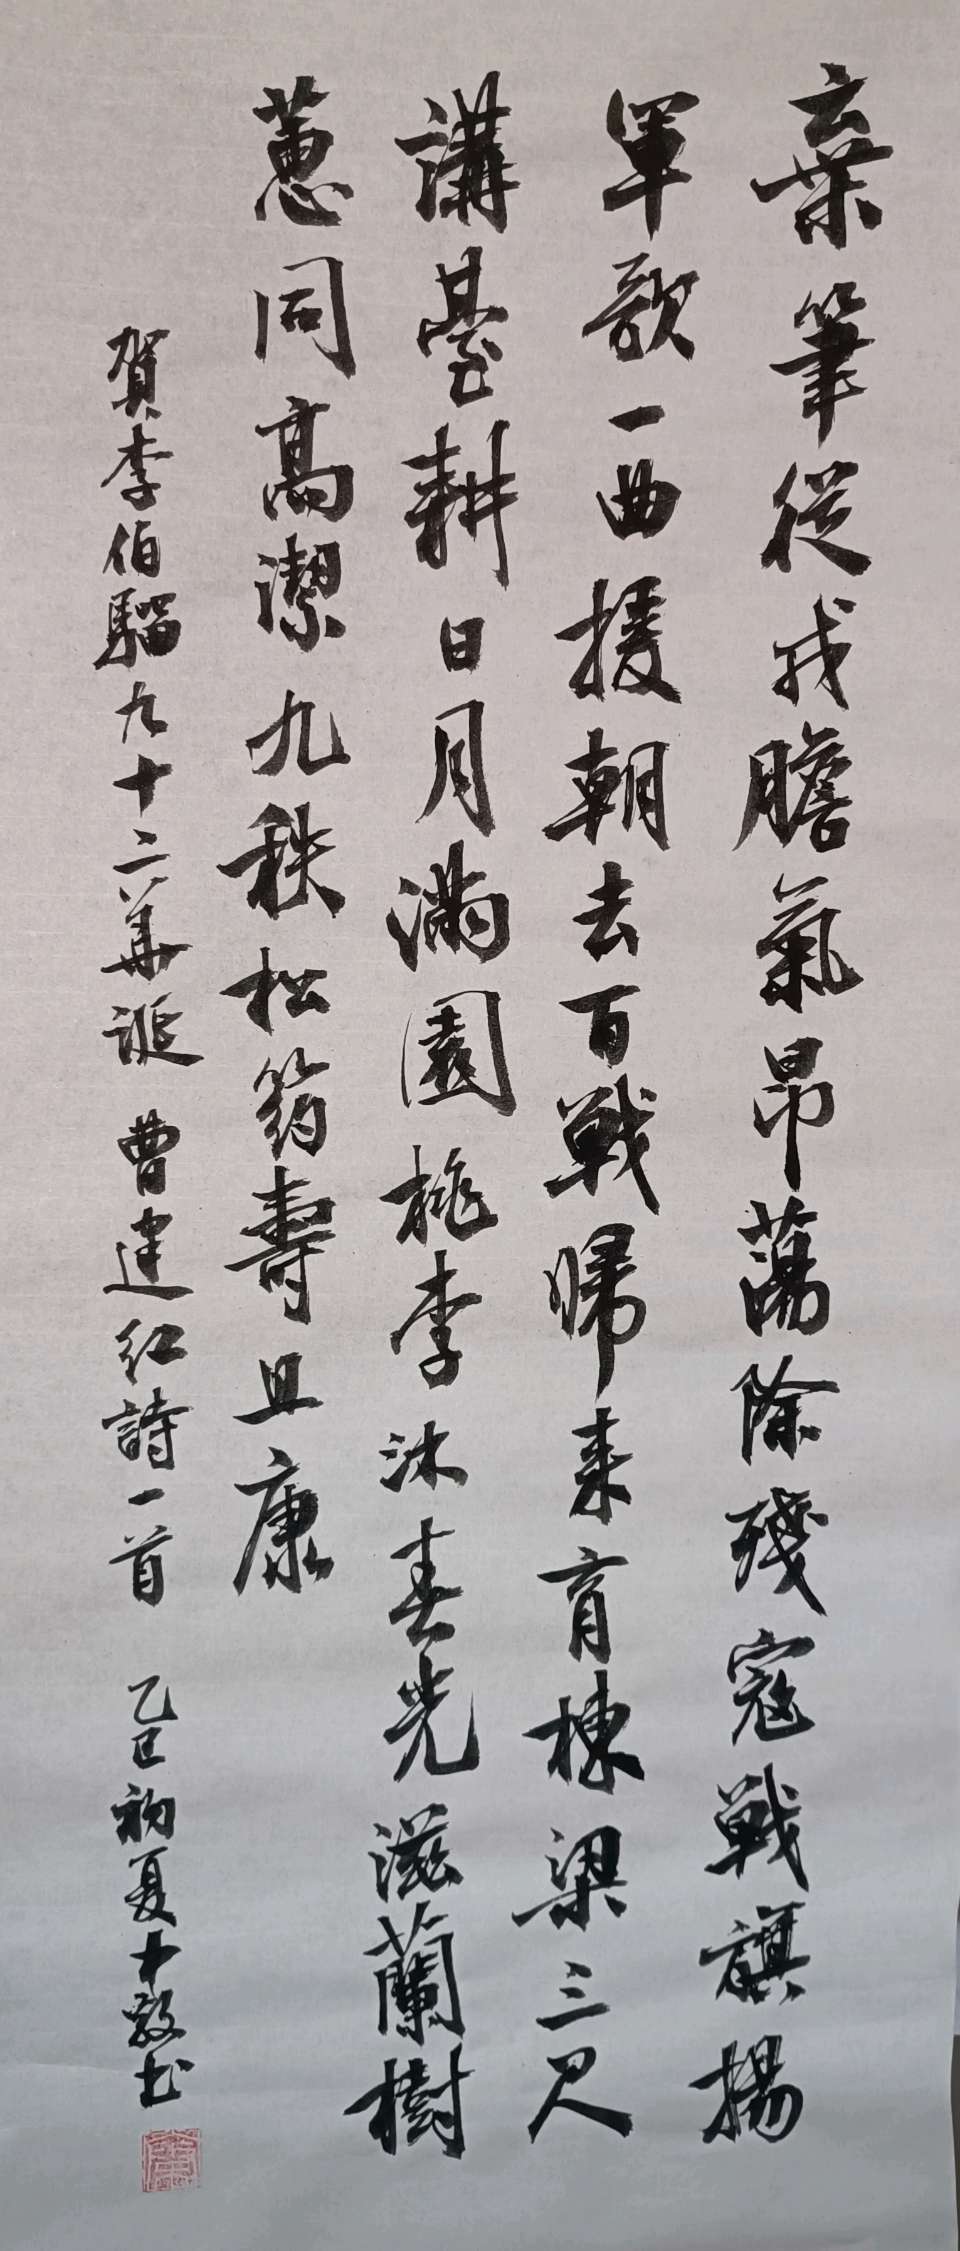 棄筆從戎膽氣昂蕩除殘寇戰旗揚
軍歌一曲援朝去百戰歸来育棟梁三尺
講臺耕日月滿園桃李沐春光滋蘭樹
蕙同高潔九秩松筠壽且康
賀李伯騮九十六華誕 曹建红詩一首 乙巳初夏書